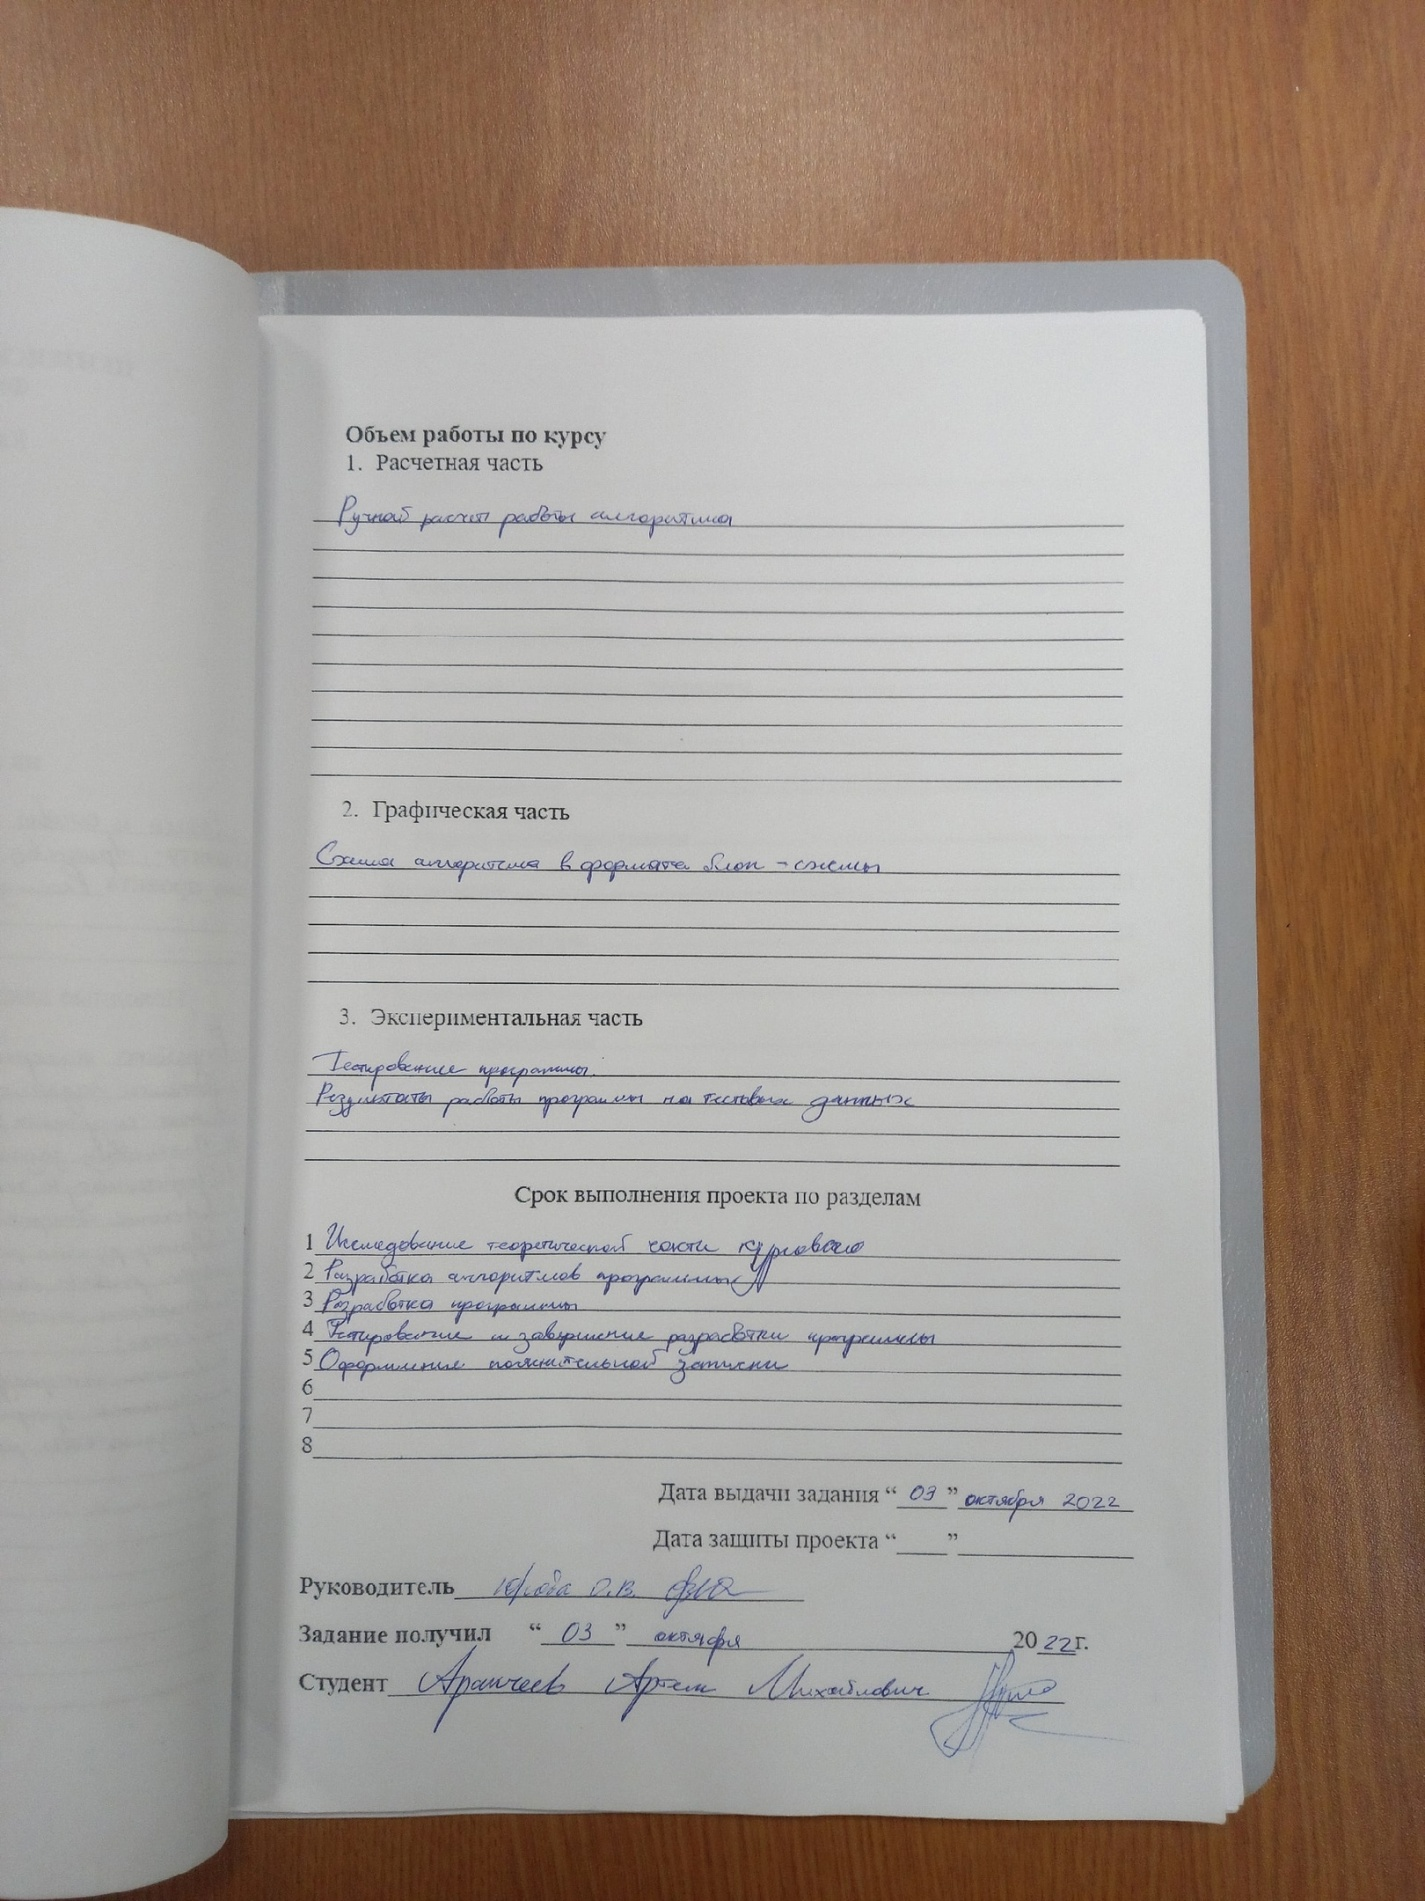 Объем работы по курсу
1. Расчетная часть
Ручной расчет работы алгоритма
2. Графическая часть
Схема алгоритма в формате блок-схемы
3. Экспериментальная часть
Тестирование программы.
Результаты работы программы на тестовых данных
Срок выполнения проекта по разделам
1 Исследование теоретической части курсового
2 Разработка алгоритмов программы
3 Разработка программы
4 Тестирование и завершение разработки программы
5 Оформление пояснительной записки
6
7
8
Дата выдачи задания “ 03 ” октября 2022
Дата защиты проекта “ ”
Руководитель О.В.
Задание получил “ 03 ” октября 2022г.
Студент Артем Михайлович